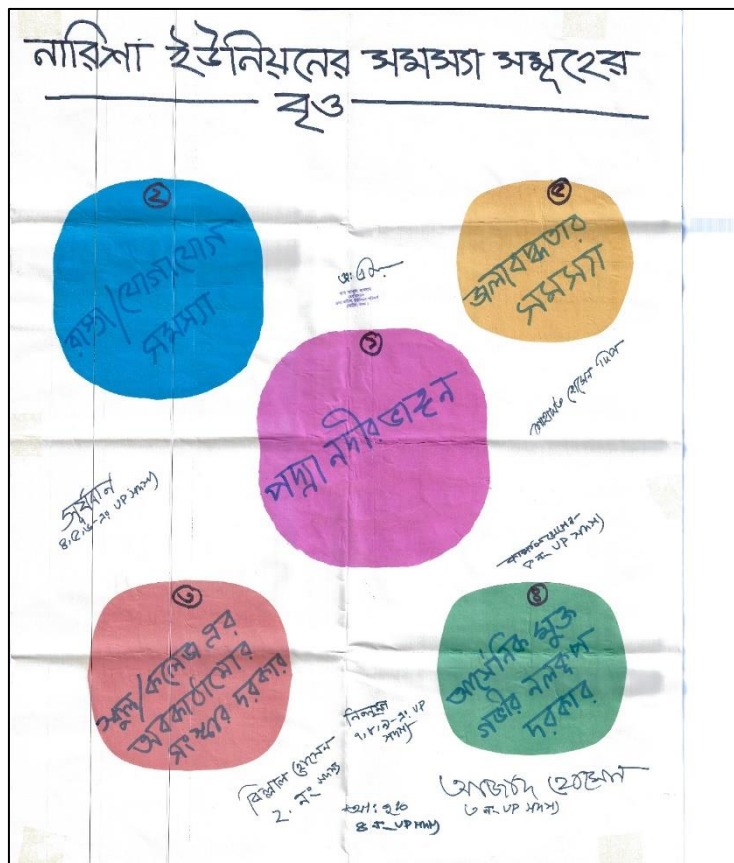 নারিশা ইউনিয়নের সমস্যা সমূহের
বৃত্ত
২
রাস্তা/যোগাযোগ
সমস্যা
৫
জলাবদ্ধতার
সমস্যা
১
পদ্মা নদীর ভাঙ্গন
সূর্যবান
৪,৫,৬-নং UP সদস্য
নং UP সদস্য
৩
স্কুল/কলেজ এর
অবকাঠামোর
সংস্কার দরকার
৪
আর্সেনিক মুক্ত
গভীর নলকূপ
দরকার
৭,৮,৯-নং UP
সদস্য
বিল্লাল হোসেন
২ নং সদস্য
৪ নং UP সদস্য
আজাদ হোসেন
৩ নং UP সদস্য